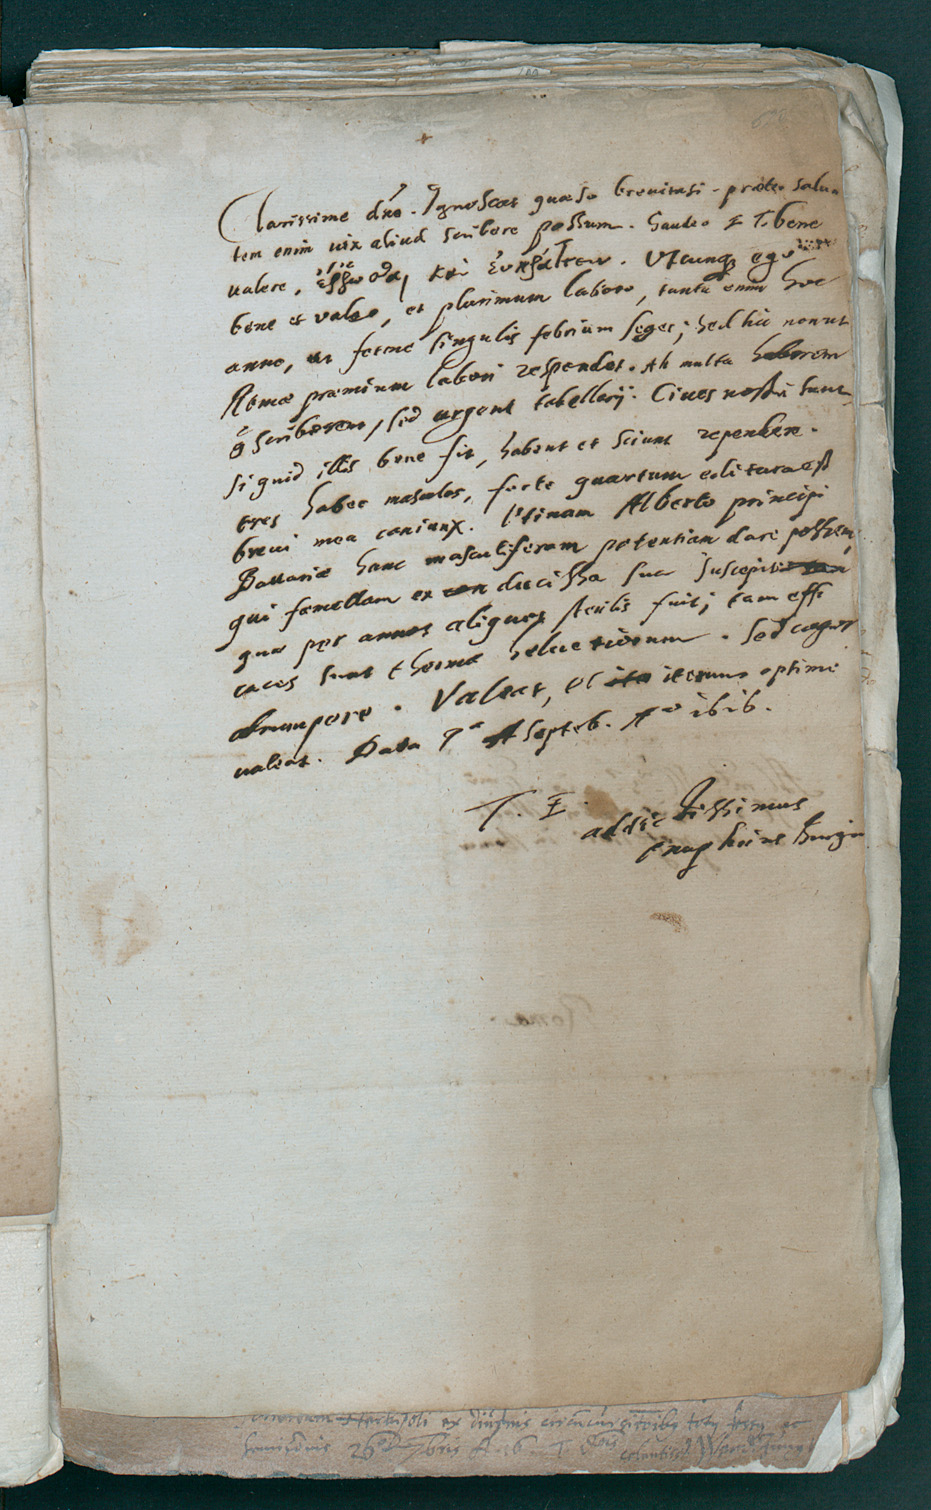 Clarissime dn̄e. Ignoscas quaeso breuitati. praeter salu-
tem enim uix aliud scribere possum. Gaudeo E T. bene
ualere, καὶ Utcunq3 ego
bene et valeo, et plurimum laboro, tanta enim hoc
anno, ut ferme singulis febrium seges; sed hic non ut
Romae praemium labori respondet. Ah multa haberem
q̄ scriberem, sed urgent tabellarij. Ciues nostri sunt
si quid illis bene fit, habent et sciunt rependere.
tres habeo masculos, forte quartum editura est
breui mea coniunx. Utinam Alberto principi
Bauariae hanc masculiferam potentiam dare possem,
qui famellam ex ducissa sua suscepit
quae per annos aliquot sterilis fuit; tam effi
caces sunt thermae heluetiorum. Sed cogor
abrumpere. Valeas, et iterum optime
ualeat. Data 7a Septeb. Ao 1616.
T. E.
addictissimus